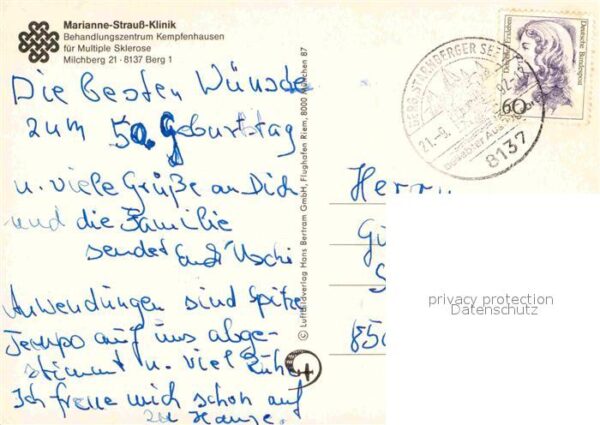 Marianne-Strauß-Klinik
Behandlungszentrum Kempfenhausen
für Multiple Sklerose
Milchberg 21 · 8137 Berg 1
Die besten Wünsche
zum 50. Geburtstag
u. viele Grüße an Dich
und die Familie
sendet Uschi
Anwendungen sind Spitze
Tempo auf uns abge-
stimmt u. viel Ruhe.
Ich freue mich schon auf
zu Hause.
© Luftbildverlag Hans Bertram GmbH, Flughafen Riem, 8000 München 87
BERG STARNBERGER SEE
21.-9.
8137
Deutsche Bundespost
60
Herrn
850
privacy protection
Datenschutz